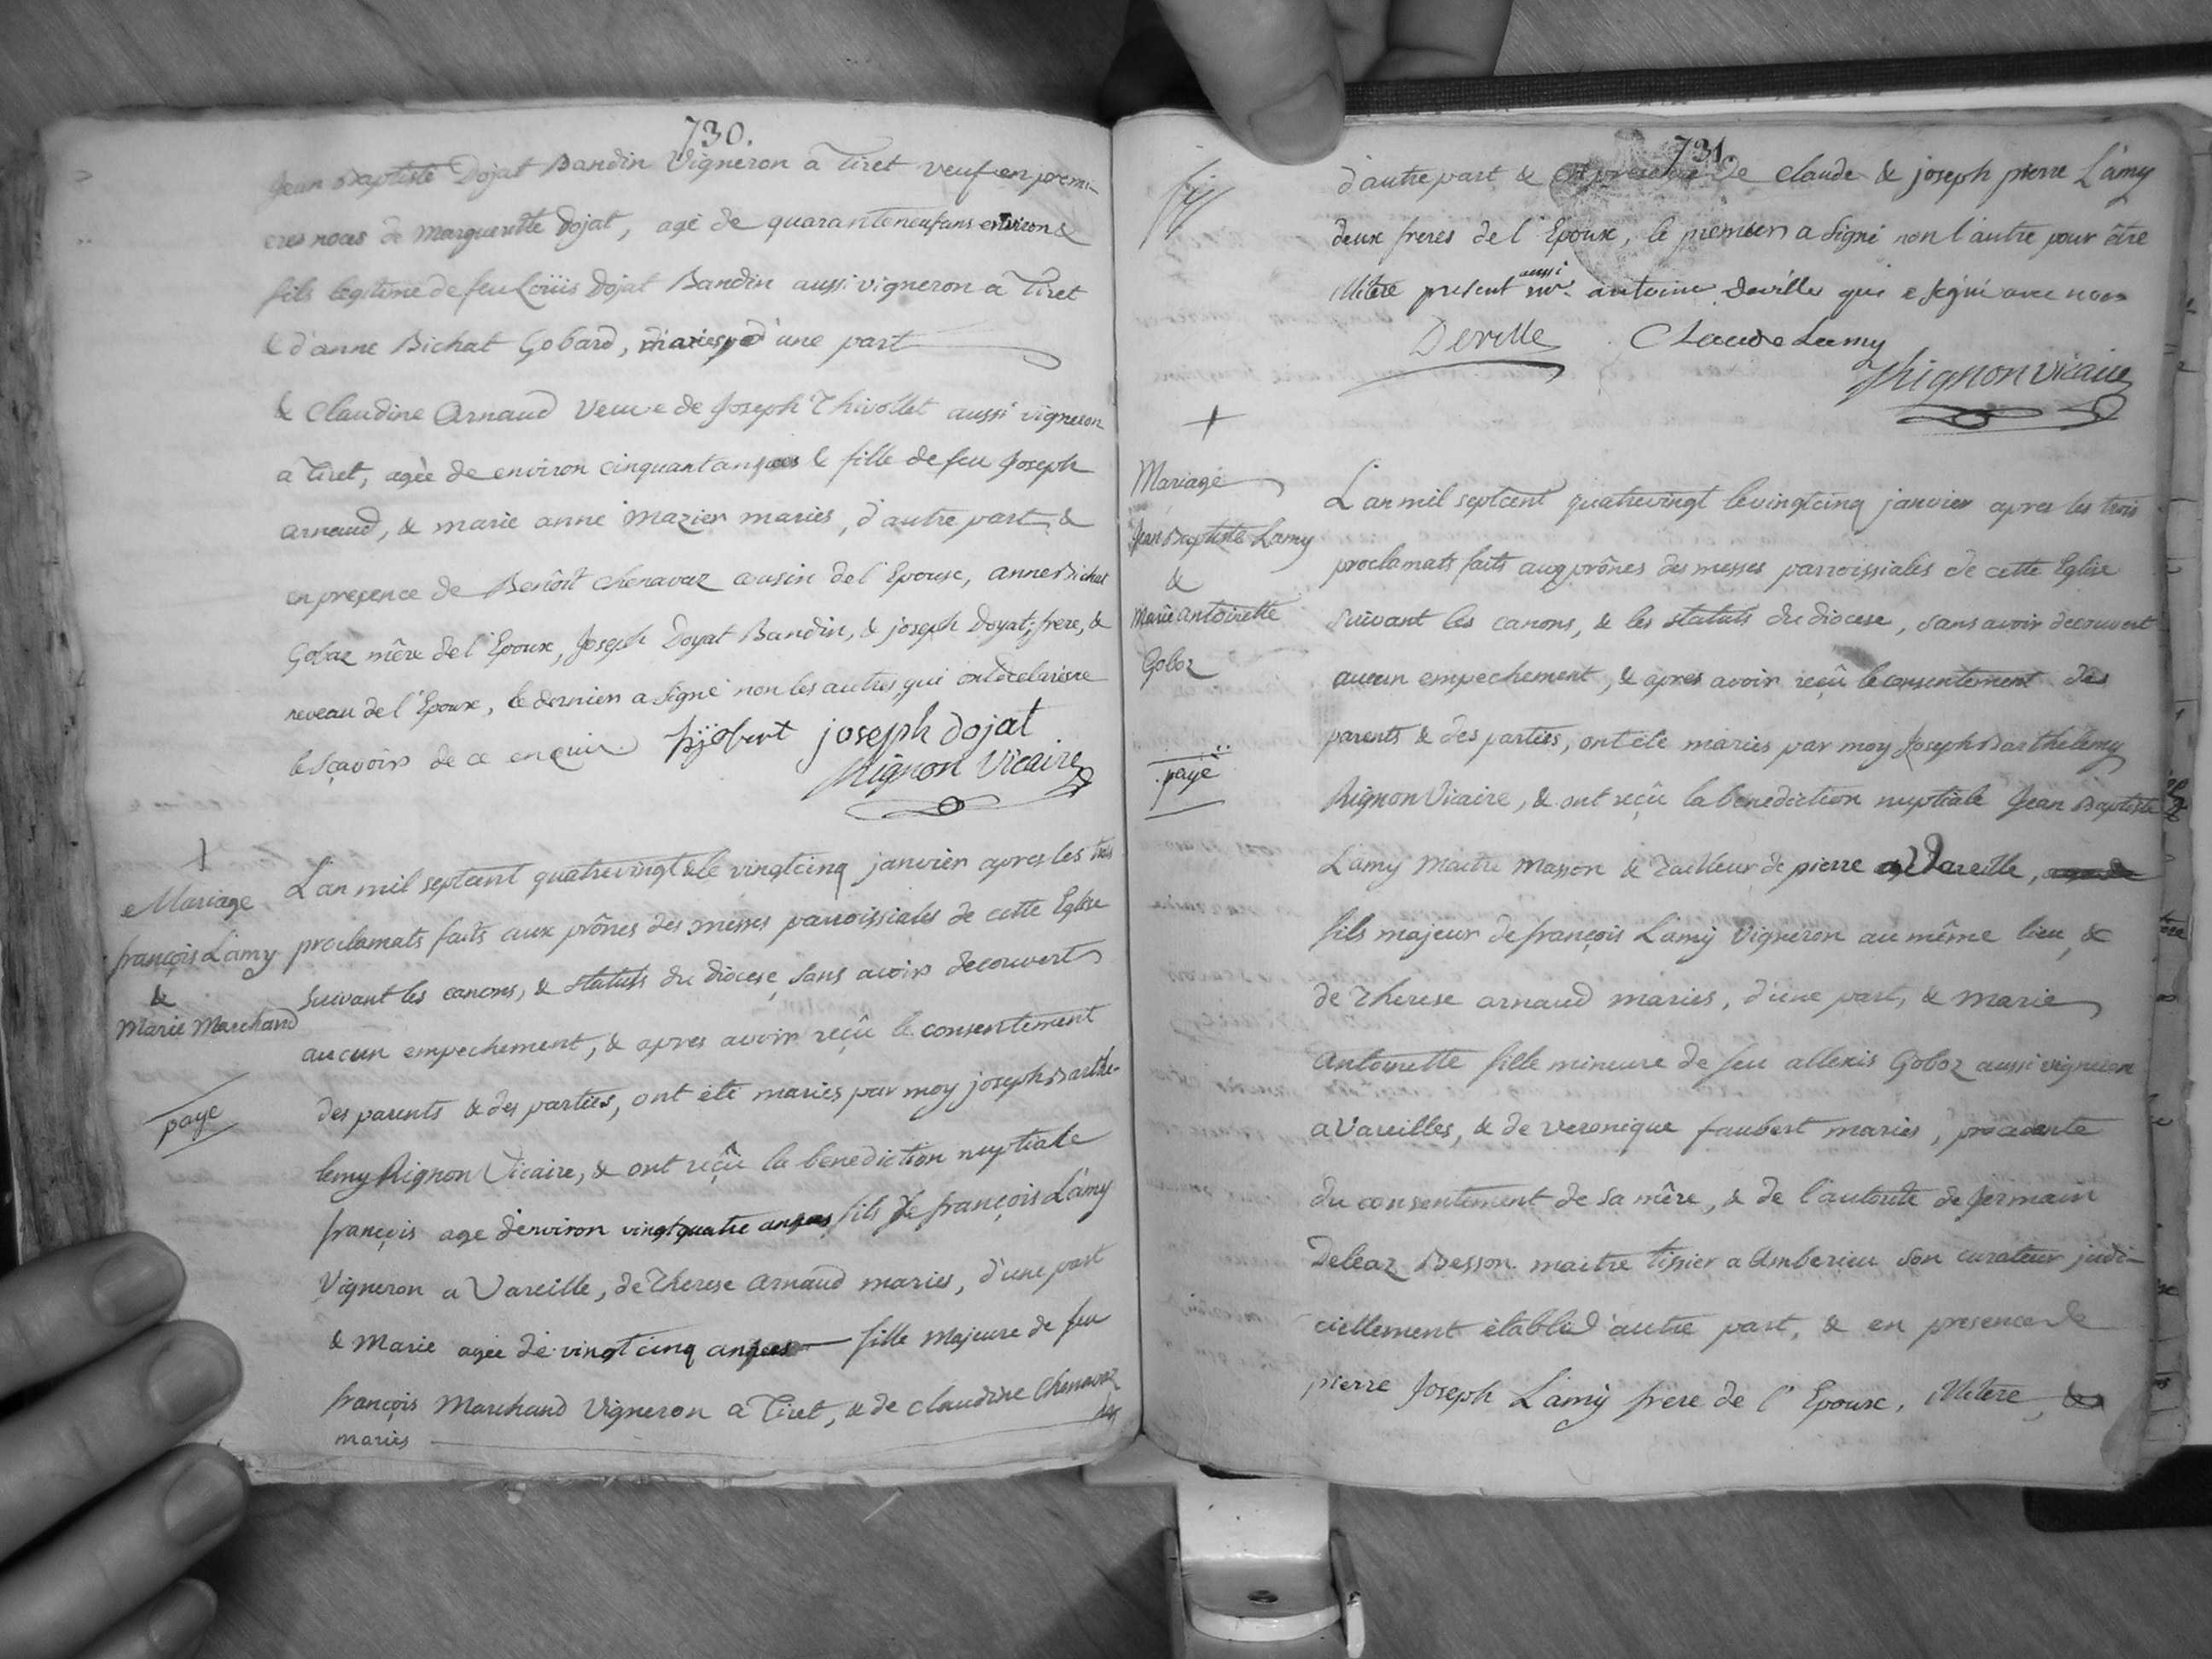 730.
Jean Baptiste Dojat Bandin Vigneron a Tiret veuf en premi-
eres noces de Margueritte Dojat, agé de quaranteneuf ans environ &
fils legitime de feu Loüis Dojat Bandin aussi vigneron a Tiret
& d'anne Bichat Gobard, mariés, d'une part
& Claudine Arnaud veuve de Joseph Thivollet aussi vigneron
a Tiret, agée de environ cinquant ans & fille de feu Joseph
Arnaud, & marie anne Mazier mariés, d'autre part, &
en presence de Benôit Chenavaz cousin de l'Epouse, anne Bichat
Gobaz mêre de l'Epoux, Joseph Doyat Bandin, & joseph Doyat, frere, &
neveau de l'Epoux, le dernier a signé non les autres qui ont declaré ne
le sçavoir de ce enquis. joseph dojat
Rignon Vicaire
+
Mariage
françois Lamy
&
Marie Marchand
paye
L'an mil septcent quatrevingt & le vingtcinq janvier apres les trois
proclamats faits aux prônes des messes parroissiales de cette Eglise
suivant les canons, & statuts du diocese, sans avoir decouvert
aucun empechement, & apres avoir reçû le consentement
des parents & des parties, ont été mariés par moy joseph Barthe-
lemy Rignon Vicaire, & ont reçû la benediction nuptiale
françois age d'environ vingtquatre ans fils de françois Lamy
Vigneron a Vareille, de Therese Arnaud mariés, d'une part
& Marie agée de vingt cinq ans fille majeure de feu
françois Marchand Vigneron a Tiret, & de Claudine Chenavaz
mariés
731.
d'autre part & en presence de claude & joseph pierre Lamy
deux freres de l'Epoux, le premier a signé non l'autre pour être
illitere present aussi mr. antoine deville qui a signé avec nous
Deville Claude Lamy
Rignon vicaire
+
Mariage
Jean Baptiste Lamy
&
Marie antoinette
Goboz
payé
L'an mil septcent quatrevingt le vingtcinq janvier apres les trois
proclamats faits aux prônes des messes parroissiales de cette Eglise
suivant les canons, & les statuts du diocese, sans avoir decouvert
aucun empechement, & apres avoir reçû le consentement des
parents & des parties, ont été mariés par moy Joseph Barthelemy
Rignon Vicaire, & ont reçû la benediction nuptiale Jean Baptiste
Lamy Maitre Masson & Tailleur de pierre a Vareille,
fils majeur de françois Lamy Vigneron au même lieu, &
de Therese arnaud mariés, d'une part, & marie
Antoinette fille mineure de feu allexis Goboz aussi vigneron
a Vareilles, & de veronique faubert mariés, procedente
du consentement de sa mêre, & de l'autorité de Germain
Deleaz Besson maitre tissier a Amberieu son curateur judi-
ciellement établi d'autre part, & en presence de
pierre Joseph Lamy frere de l'Epoux, illitere, &